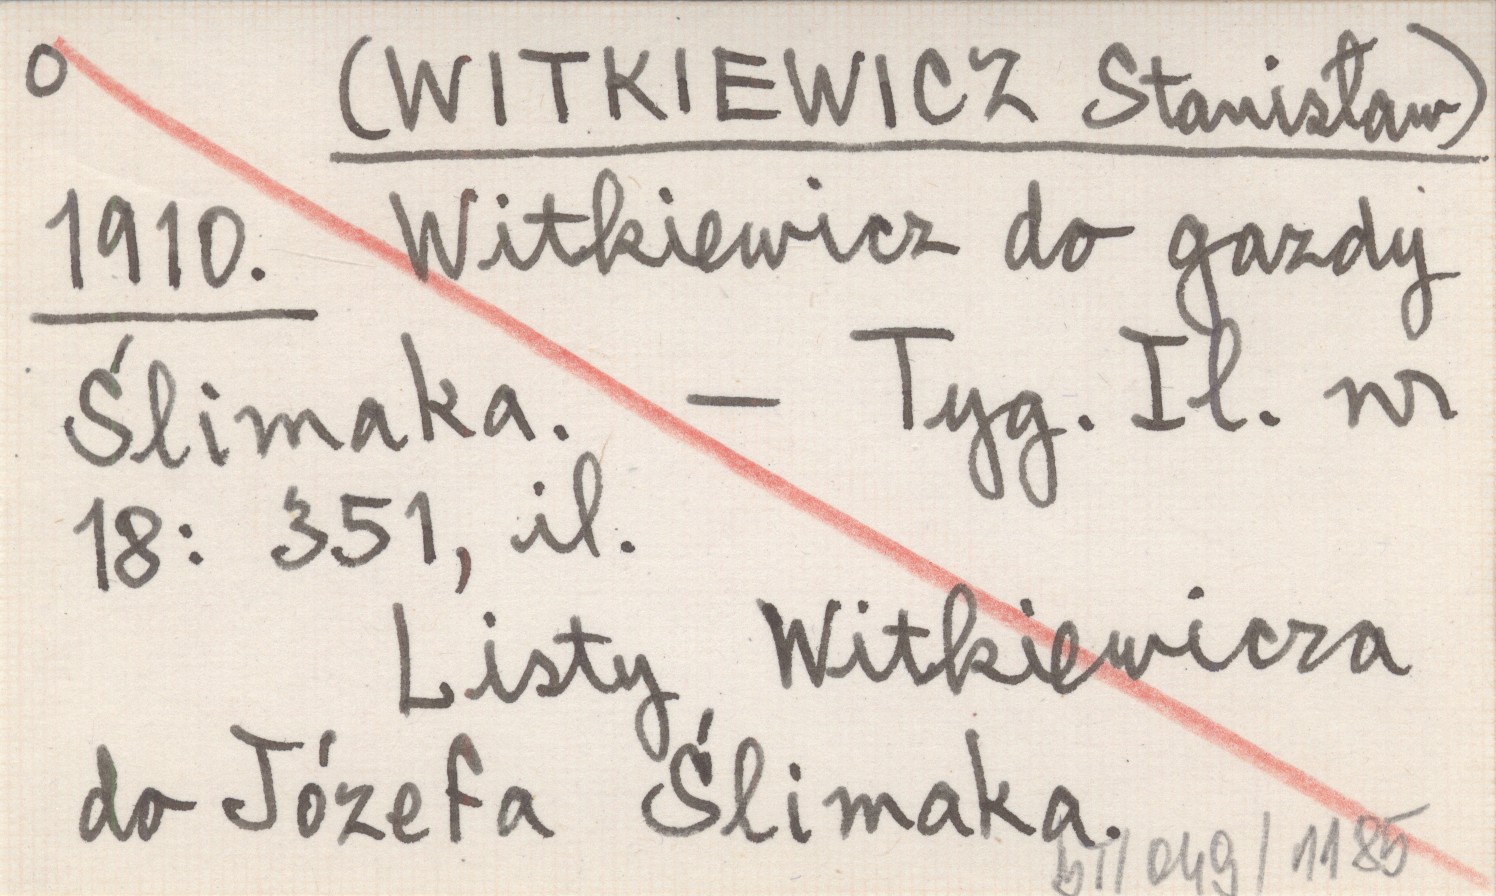 o (WITKIEWICZ Stanisław)
1910. Witkiewicz do gazdy
Ślimaka. — Tyg. Il. nr
18: 351, il.
Listy Witkiewicza
do Józefa Ślimaka.
/049/1185